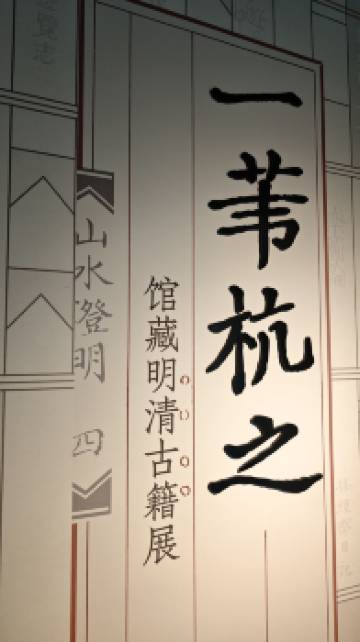 一苇杭之
馆藏明清古籍展
山水澄明 四
览志